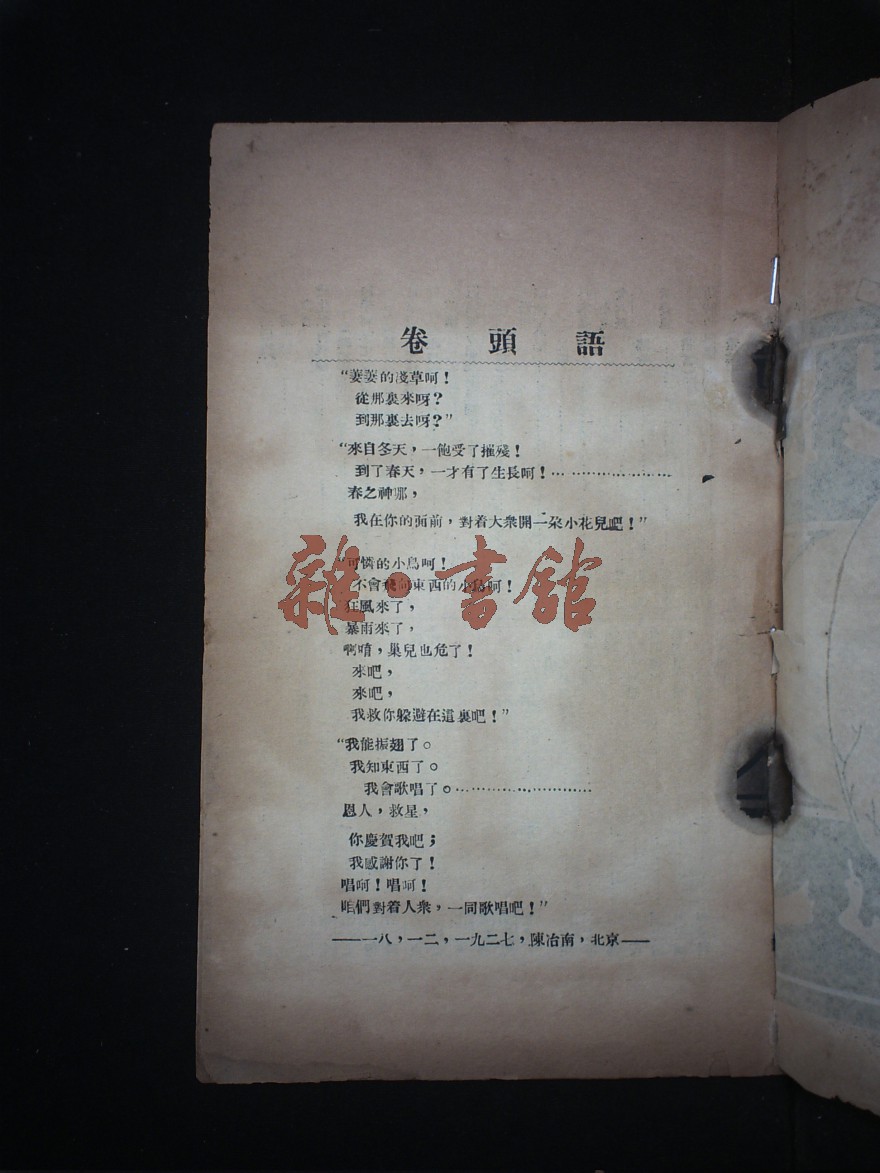 卷頭語
“萋萋的淺草呵！
從那裏來呀？
到那裏去呀？”
“來自冬天，一飽受了摧殘！
到了春天，一才有了生長呵！…………………
春之神哪，
我在你的面前，對着大衆開一朶小花兒吧！”
“可憐的小鳥呵！
不會飛向東西的小鳥呵！
狂風來了，
暴雨來了，
啊唷，巢兒也危了！
來吧，
來吧，
我救你躲避在這裏吧！”
“我能振翅了。
我知東西了。
我會歌唱了。…………………
恩人，救星，
你慶賀我吧；
我感謝你了！
唱呵！唱呵！
咱們對着人衆，一同歌唱吧！”
——一八，一二，一九二七，陳冶南，北京——
雜·書館